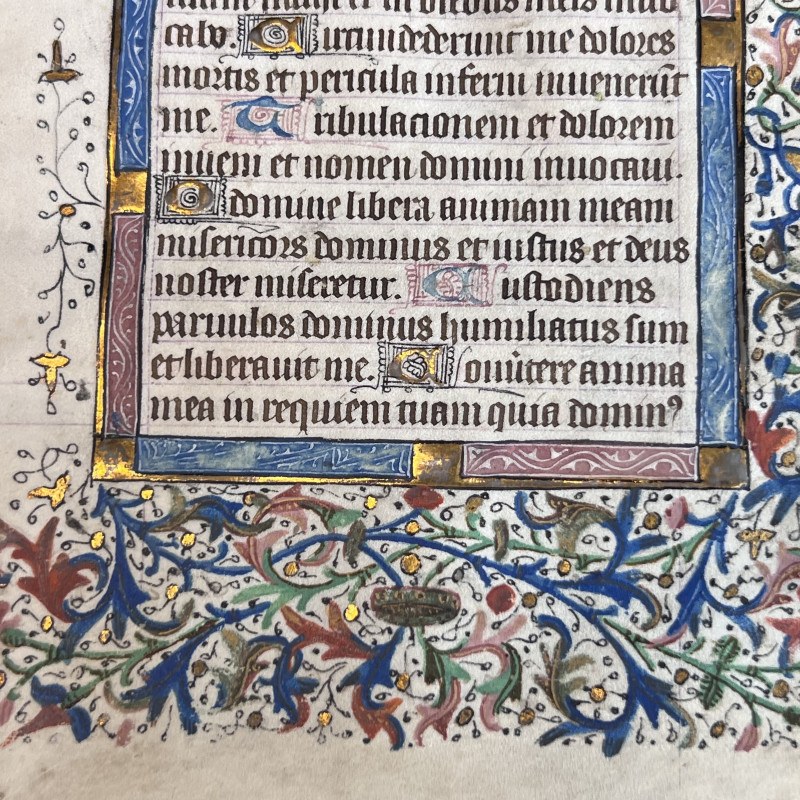 et in diebus meis inuo
cabo. Circundederunt me dolores
mortis et pericula inferni inuenerūt
me. Tribulacionem et dolorem
inueni et nomen domini inuocaui.
O domine libera animam meam
misericors dominus et iustus et deus
noster miseretur. Custodiens
paruulos dominus humiliatus sum
et liberauit me. Conūtere anima
mea in requiem tuam quia dominꝰ